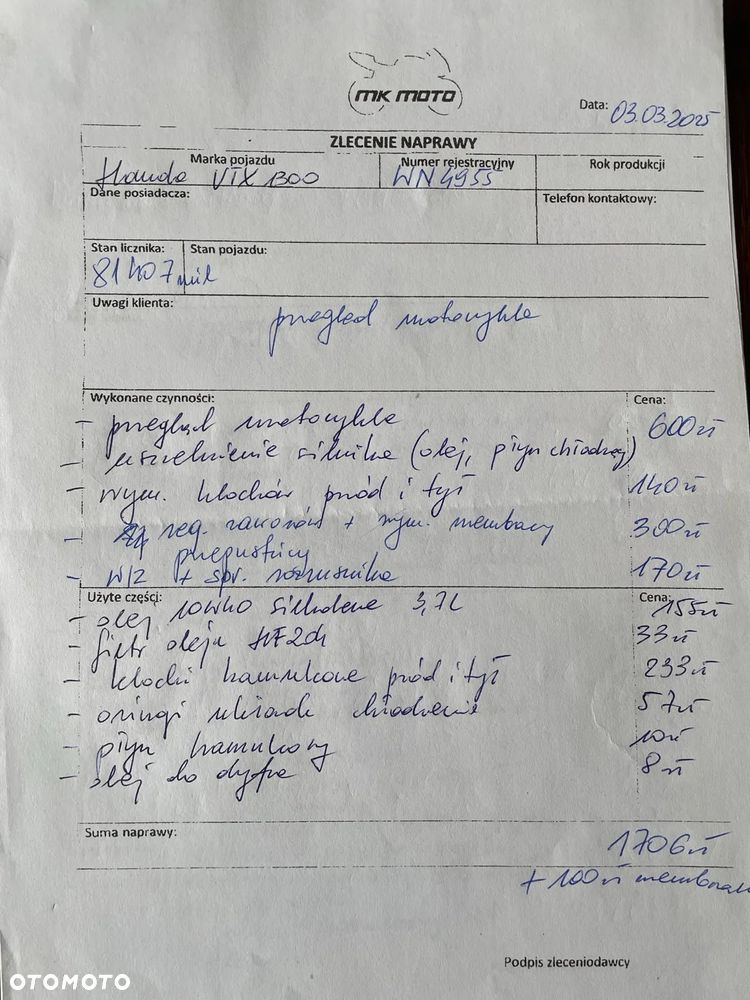 MK MOTO
Data: 03.03.2025
ZLECENIE NAPRAWY
Marka pojazdu
Numer rejestracyjny
Rok produkcji
Honda VTX 1300
WN4955
Dane posiadacza:
Telefon kontaktowy:
Stan licznika:
Stan pojazdu:
81407 mil
Uwagi klienta:
przegląd motocykla
Wykonane czynności:
Cena:
- przegląd motocykla 600zł
- uszczelnienie silnika (olej, płyn chłodzący)
- wym. klocków przód i tył 140zł
- reg. zaworów + wym. membrany 300zł
przepustnicy
- W/Z + spr. rozrusznika 170zł
Użyte części:
Cena:
- olej 10W40 silkolene 3,7L 155zł
- filtr oleju 33zł
- klocki hamulcowe przód i tył 233zł
- oringi układ chłodzenia 57zł
- płyn hamulcowy 10zł
- olej do dyfra 8zł
Suma naprawy:
1706zł
+ 100zł membrana
Podpis zleceniodawcy
OTOMOTO